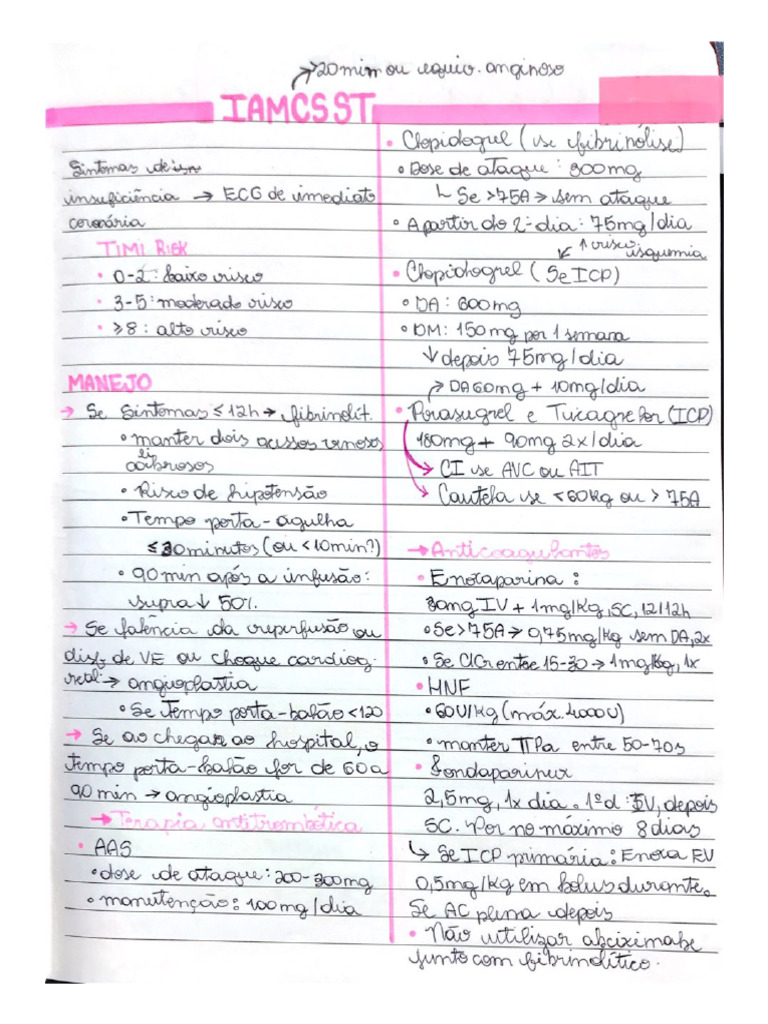 >20min ou equiv. anginoso
IAMCSST
Sintomas de
insuficiência → ECG de imediato
coronária
TIMI RISK
• 0-2: baixo risco
• 3-5: moderado risco
• ≥8: alto risco
MANEJO
→ Se sintomas ≤12h → fibrinolít.
• manter dois acessos venosos
calibrosos
• Risco de hipotensão
• Tempo porta-agulha
≤30minutos (ou <10min?)
• 90min após a infusão:
supra ↓ 50%
→ Se falência da reperfusão ou
disf. de VE ou choque cardiog.
real → angioplastia
• Se Tempo porta-balão <120
→ Se ao chegar ao hospital, o
Tempo porta-balão for de 60 a
90min → angioplastia
→ Terapia antitrombótica
• AAS
• dose de ataque: 200-300mg
• manutenção: 100mg/dia
• Clopidogrel (se fibrinólise)
• Dose de ataque: 300mg
↳ Se >75A → sem ataque
• A partir do 2º dia: 75mg/dia
↑ risco isquemia
• Clopidogrel (Se ICP)
• DA: 600mg
• DM: 150mg por 1 semana
↓ depois 75mg/dia
DA 60mg + 10mg/dia
• Parasugrel e Ticagrelor (ICP)
180mg + 90mg 2x/dia
→ CI se AVC ou AIT
→ Cautela se <60kg ou >75A
→ Anticoagulantes
• Enoxaparina:
30mg IV + 1mg/Kg, SC, 12/12h
• Se >75A → 0,75mg/Kg sem DA, 2x
• Se ClCr entre 15-30 → 1mg/Kg, 1x
• HNF
• 60U/Kg (máx. 4000U)
• manter TTPa entre 50-70s
• Fondaparinux
2,5mg, 1x dia. 1ºd: IV, depois
SC. Por no máximo 8 dias
↳ Se ICP primária: Enoxa EV
0,5mg/Kg em bolus durante.
Se AC plena depois
• Não utilizar abciximabe
junto com fibrinolítico.